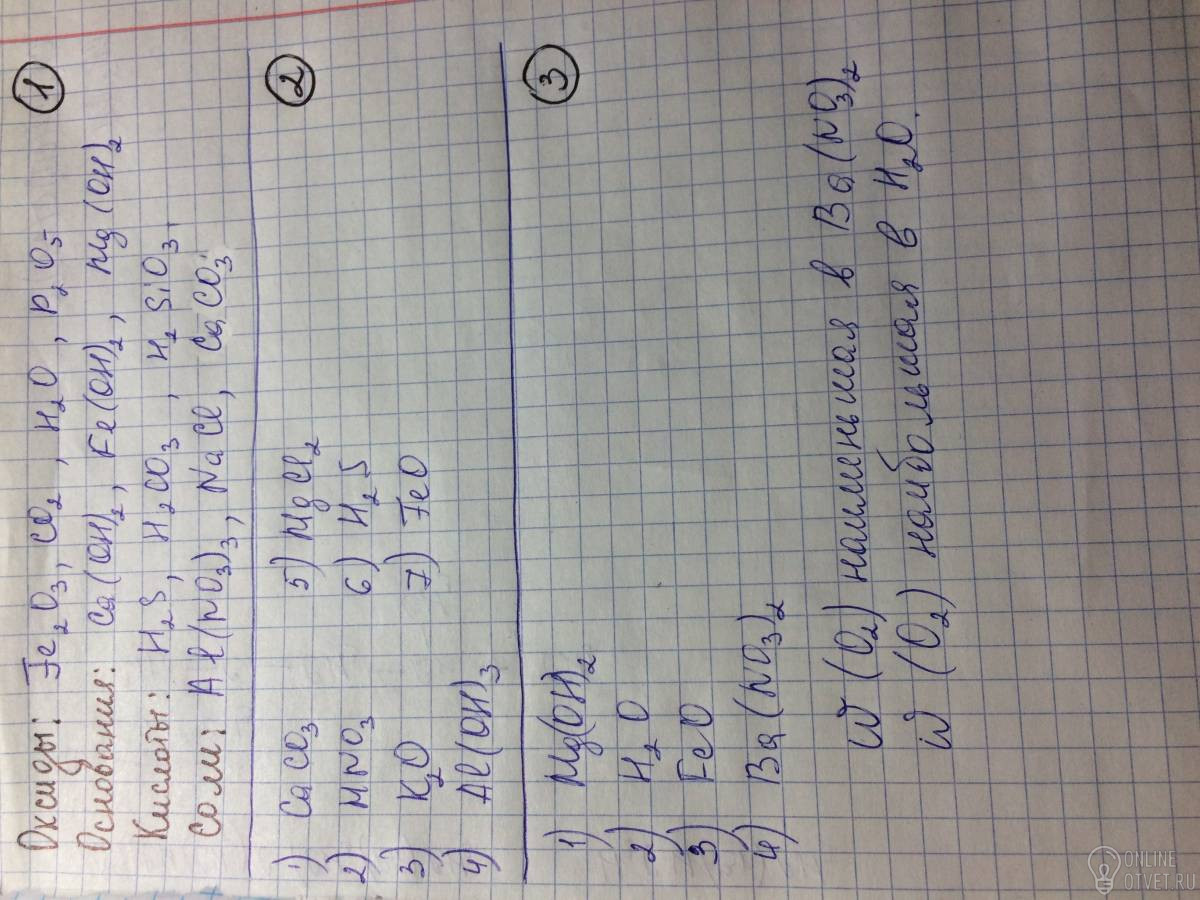 ①
Оксиды: Fe₂O₃, CO₂, H₂O, P₂O₅
Основания: Ca(OH)₂, Fe(OH)₂, Mg(OH)₂
Кислоты: H₂S, H₂CO₃, H₂SiO₃,
Соли: Al(NO₃)₃, NaCl, CaCO₃.
②
1) CaCO₃ 5) MgCl₂
2) HNO₃ 6) H₂S
3) K₂O 7) FeO
4) Al(OH)₃
③
1) Mg(OH)₂
2) H₂O
3) FeO
4) Ba(NO₃)₂
W (O₂) наименьшая в Ba(NO₃)₂
W (O₂) наибольшая в H₂O.
ONLINE
OTVET.RU